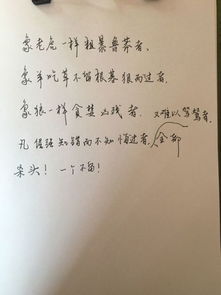 象老虎一样粗暴鲁莽者,
象羊吃草不留根暴狠而过者,
象狼一样贪婪凶残者, 又难以驾驾者,
凡倔强知错而不知悔过者, 全部
杀头! 一个不留!